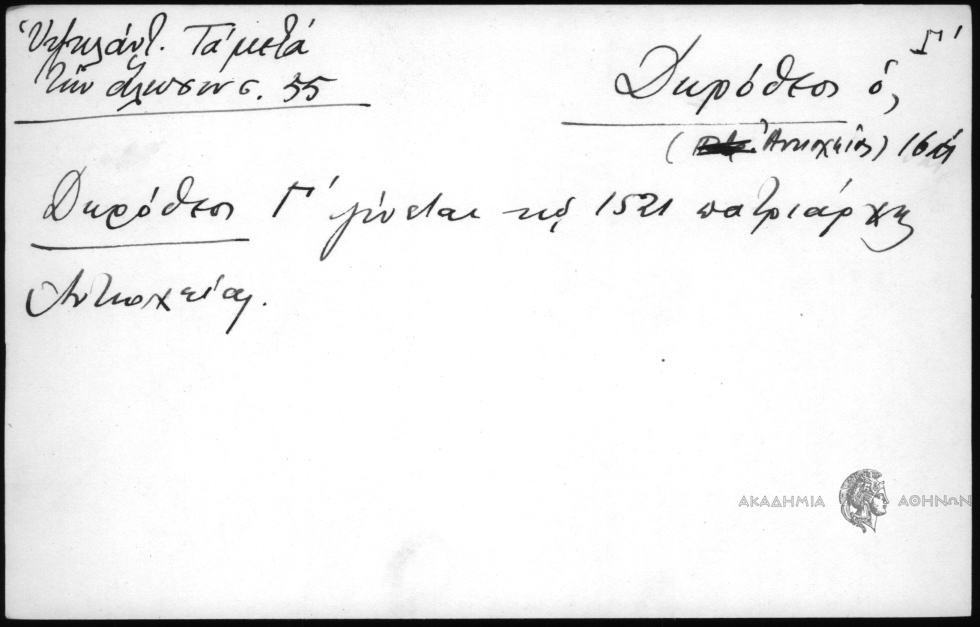 Ὑψηλάντ. Τὰ μετὰ
τὴν ἅλωσιν σ. 55
Γ'
Δωρόθεος ὁ,
(Ἀντιοχείας) 16
Δωρόθεος Γ' γίνεται τῷ 1521 πατριάρχης
Ἀντιοχείας.
ΑΚΑΔΗΜΙΑ ΑΘΗΝΩΝ